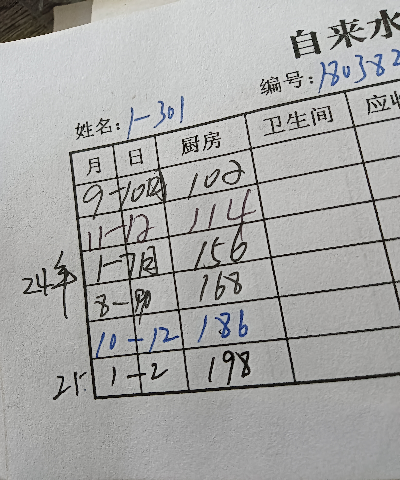 自来水
编号：180382
姓名：1-301
月 日 厨房 卫生间 应收
9-10月 102
11-12 114
24年 1-7月 156
8-9 168
10-12 186
25 1-2 198